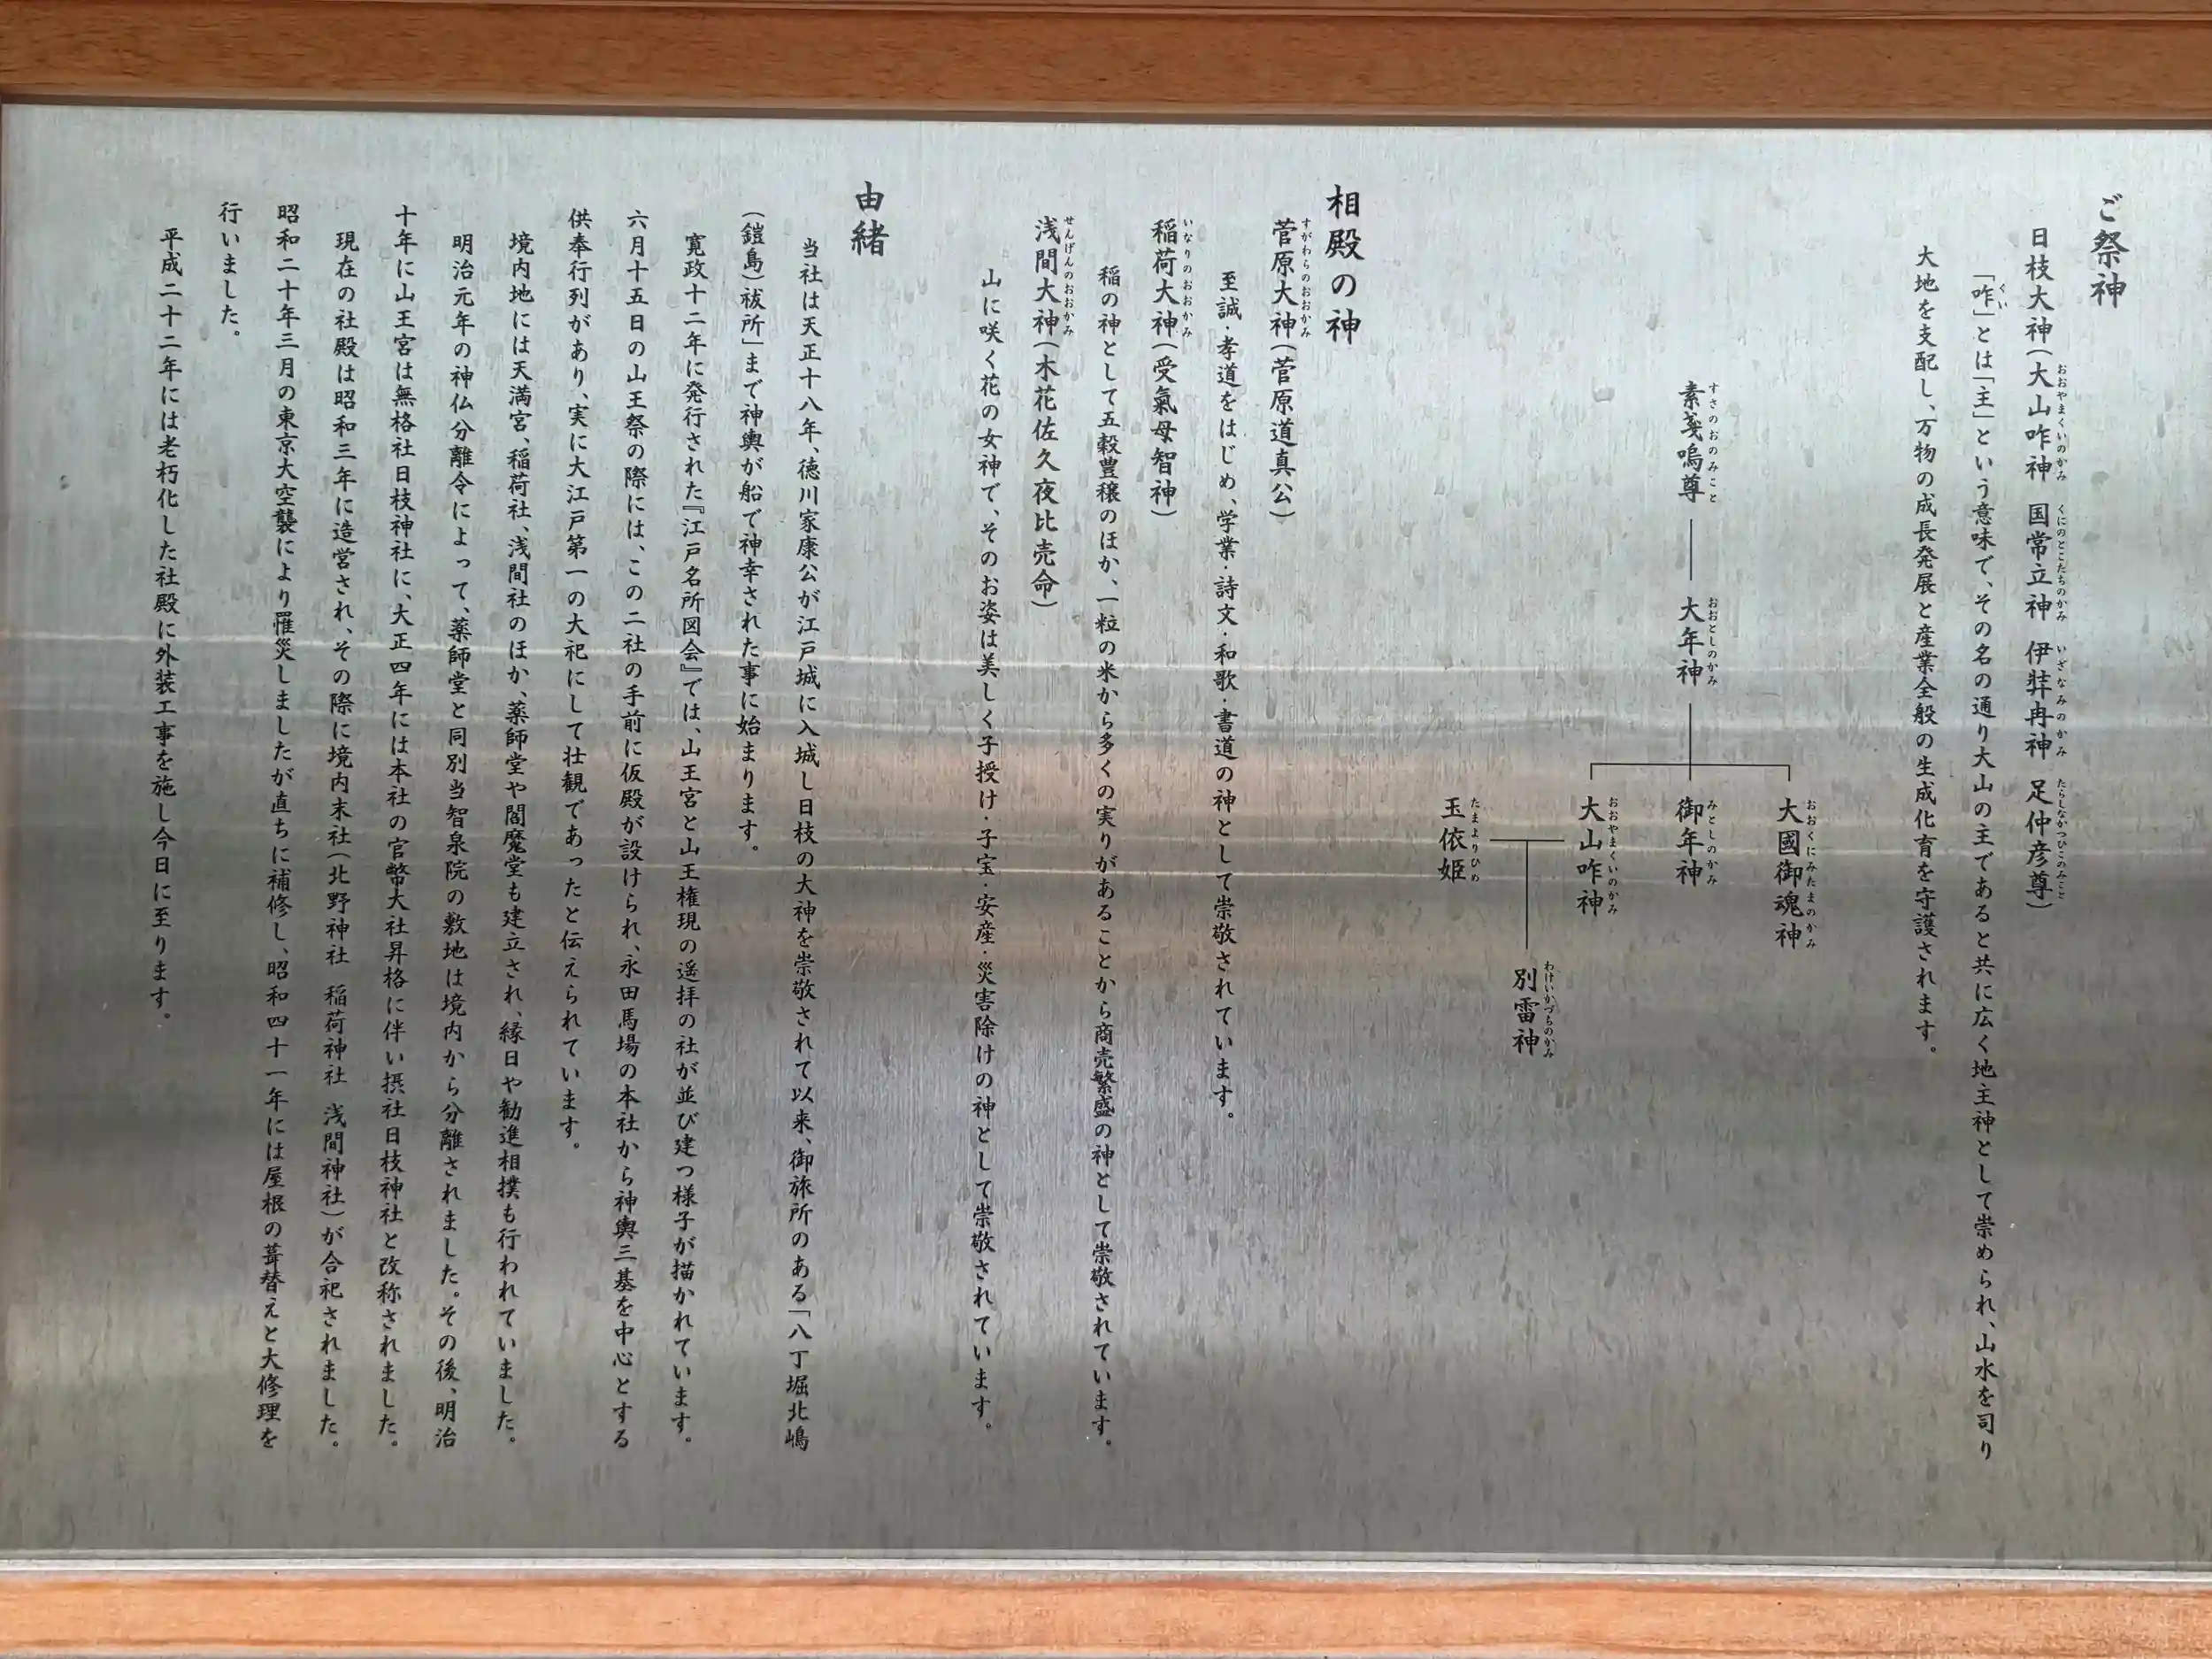 ご祭神
日枝大神（大山咋神　国常立神　伊弉冉神　足仲彦尊）
おおやまくいのかみ　くにのとこたちのかみ　いざなみのかみ　たらしなかつひこのみこと
「咋」とは「主」という意味で、その名の通り大山の主であると共に広く地主神として崇められ、山水を司り
くい
大地を支配し、万物の成長発展と産業全般の生成化育を守護されます。
素戔嗚尊
すさのおのみこと
大年神
おおとしのかみ
大國御魂神
おおくにみたまのかみ
御年神
みとしのかみ
大山咋神
おおやまくいのかみ
玉依姫
たまよりひめ
別雷神
わけいかづちのかみ
相殿の神
菅原大神（菅原道真公）
すがわらのおおかみ
至誠・孝道をはじめ、学業・詩文・和歌・書道の神として崇敬されています。
稲荷大神（受氣母智神）
いなりのおおかみ
稲の神として五穀豊穣のほか、一粒の米から多くの実りがあることから商売繁盛の神として崇敬されています。
浅間大神（木花佐久夜比売命）
せんげんのおおかみ
山に咲く花の女神で、そのお姿は美しく子授け・子宝・安産・災害除けの神として崇敬されています。
由緒
当社は天正十八年、徳川家康公が江戸城に入城し日枝の大神を崇敬されて以来、御旅所のある「八丁堀北嶋
（鎧島）祓所」まで神輿が船で神幸された事に始まります。
寛政十二年に発行された『江戸名所図会』では、山王宮と山王権現の遥拝の社が並び建つ様子が描かれています。
六月十五日の山王祭の際には、この二社の手前に仮殿が設けられ、永田馬場の本社から神輿三基を中心とする
供奉行列があり、実に大江戸第一の大祀にして壮観であったと伝えられています。
境内地には天満宮、稲荷社、浅間社のほか、薬師堂や閻魔堂も建立され、縁日や勧進相撲も行われていました。
明治元年の神仏分離令によって、薬師堂と同別当智泉院の敷地は境内から分離されました。その後、明治
十年に山王宮は無格社日枝神社に、大正四年には本社の官幣大社昇格に伴い摂社日枝神社と改称されました。
現在の社殿は昭和三年に造営され、その際に境内末社（北野神社　稲荷神社　浅間神社）が合祀されました。
昭和二十年三月の東京大空襲により罹災しましたが直ちに補修し、昭和四十一年には屋根の葺替えと大修理を
行いました。
平成二十二年には老朽化した社殿に外装工事を施し今日に至ります。